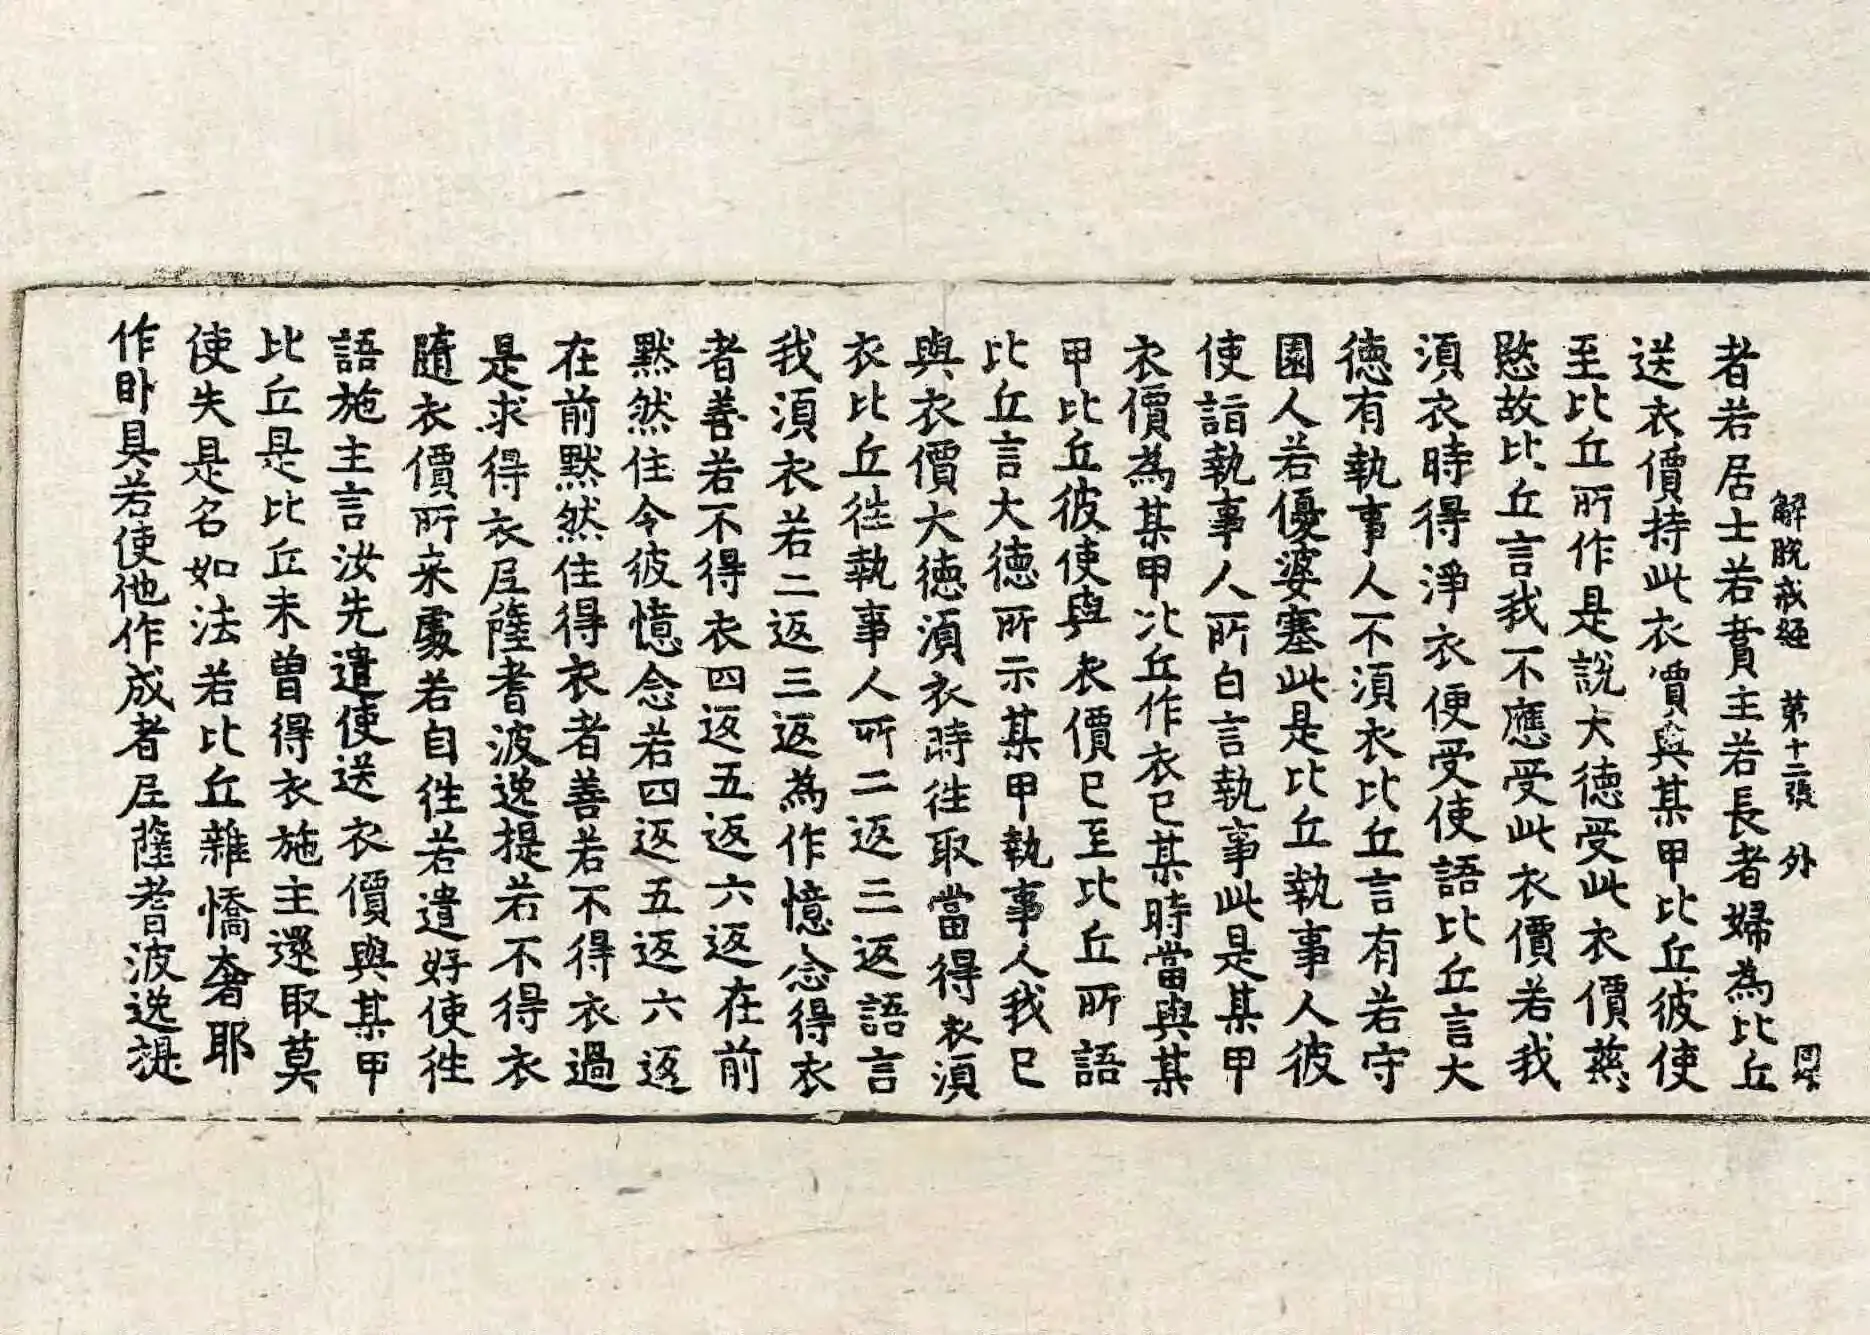 解脫戒經 第十二張 外
者若居士若賣主若長者婦為比丘
送衣價持此衣價與某甲比丘彼使
至比丘所作是說大德受此衣價慈
愍故比丘言我不應受此衣價若我
須衣時得淨衣便受使語比丘言大
德有執事人不須衣比丘言有若守
園人若優婆塞此是比丘執事人彼
使詣執事人所白言執事此是某甲
衣價為某甲比丘作衣已某時當與某
甲比丘彼使與衣價已至比丘所語
比丘言大德所示某甲執事人我已
與衣價大德須衣時往取當得衣須
衣比丘往執事人所二返三返語言
我須衣若二返三返為作憶念得衣
者善若不得衣四返五返六返在前
默然住令彼憶念若四返五返六返
在前默然住得衣者善若不得衣過
是求得衣尼薩耆波逸提若不得衣
隨衣價所來處若自往若遣好使往
語施主言汝先遣使送衣價與某甲
比丘是比丘未曾得衣施主還取莫
使失是名如法若比丘雜憍奢耶
作卧具若使他作成者尼薩耆波逸提